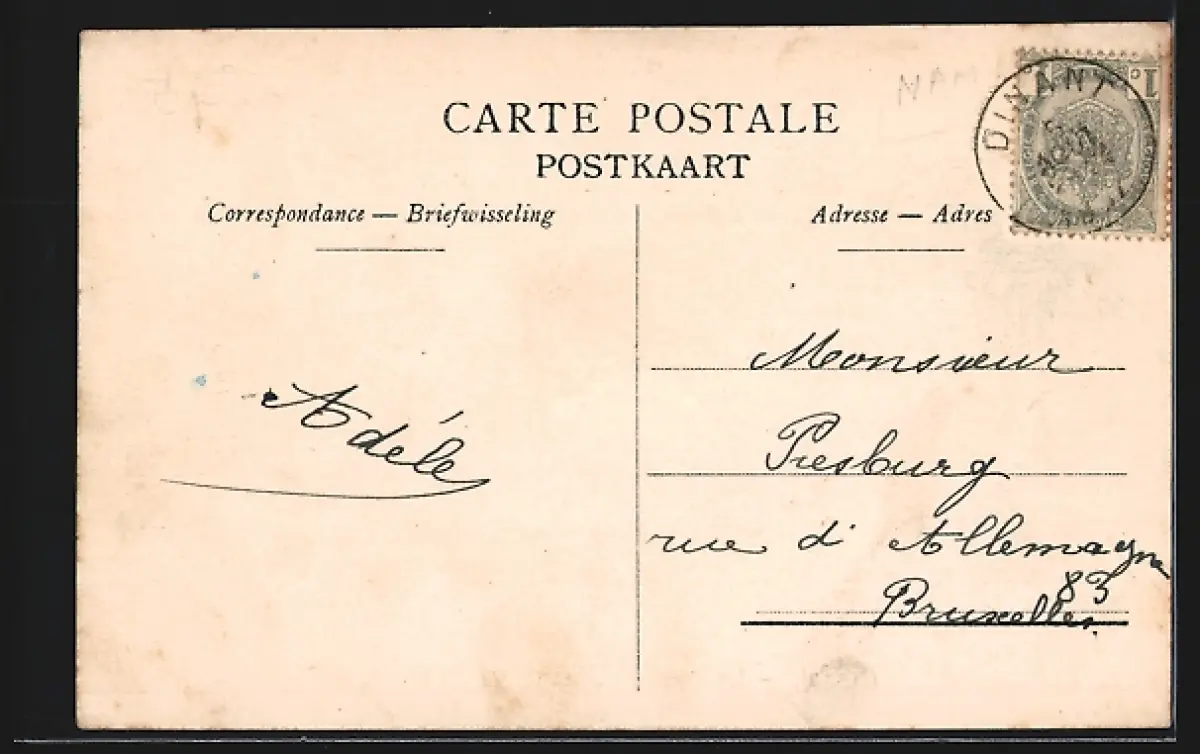 CARTE POSTALE
POSTKAART
Correspondance — Briefwisseling
Adresse — Adres
DINANT
1
Adéle
Monsieur
Presburg
rue d'Allemagne
83
Bruxelles.